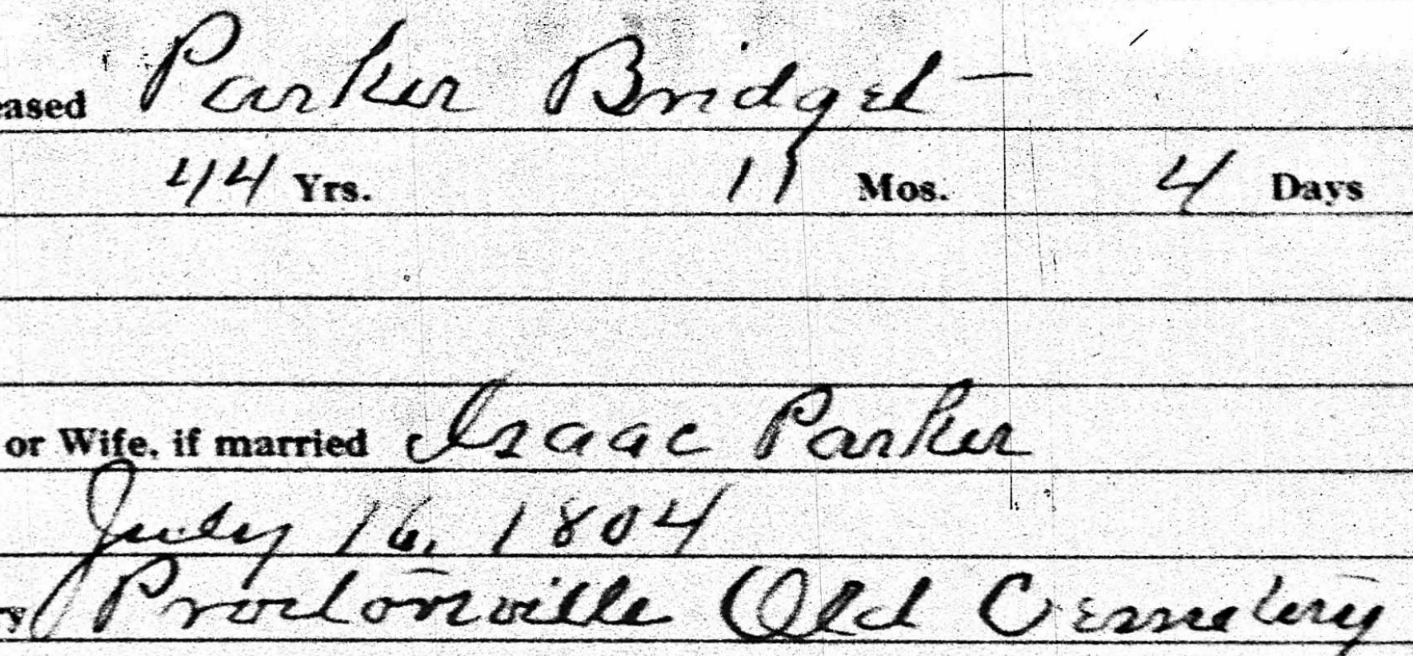 eased Parker Bridget —
44 Yrs. 11 Mos. 4 Days
or Wife, if married Isaac Parker
July 16, 1804
Proctorsville Old Cemetery